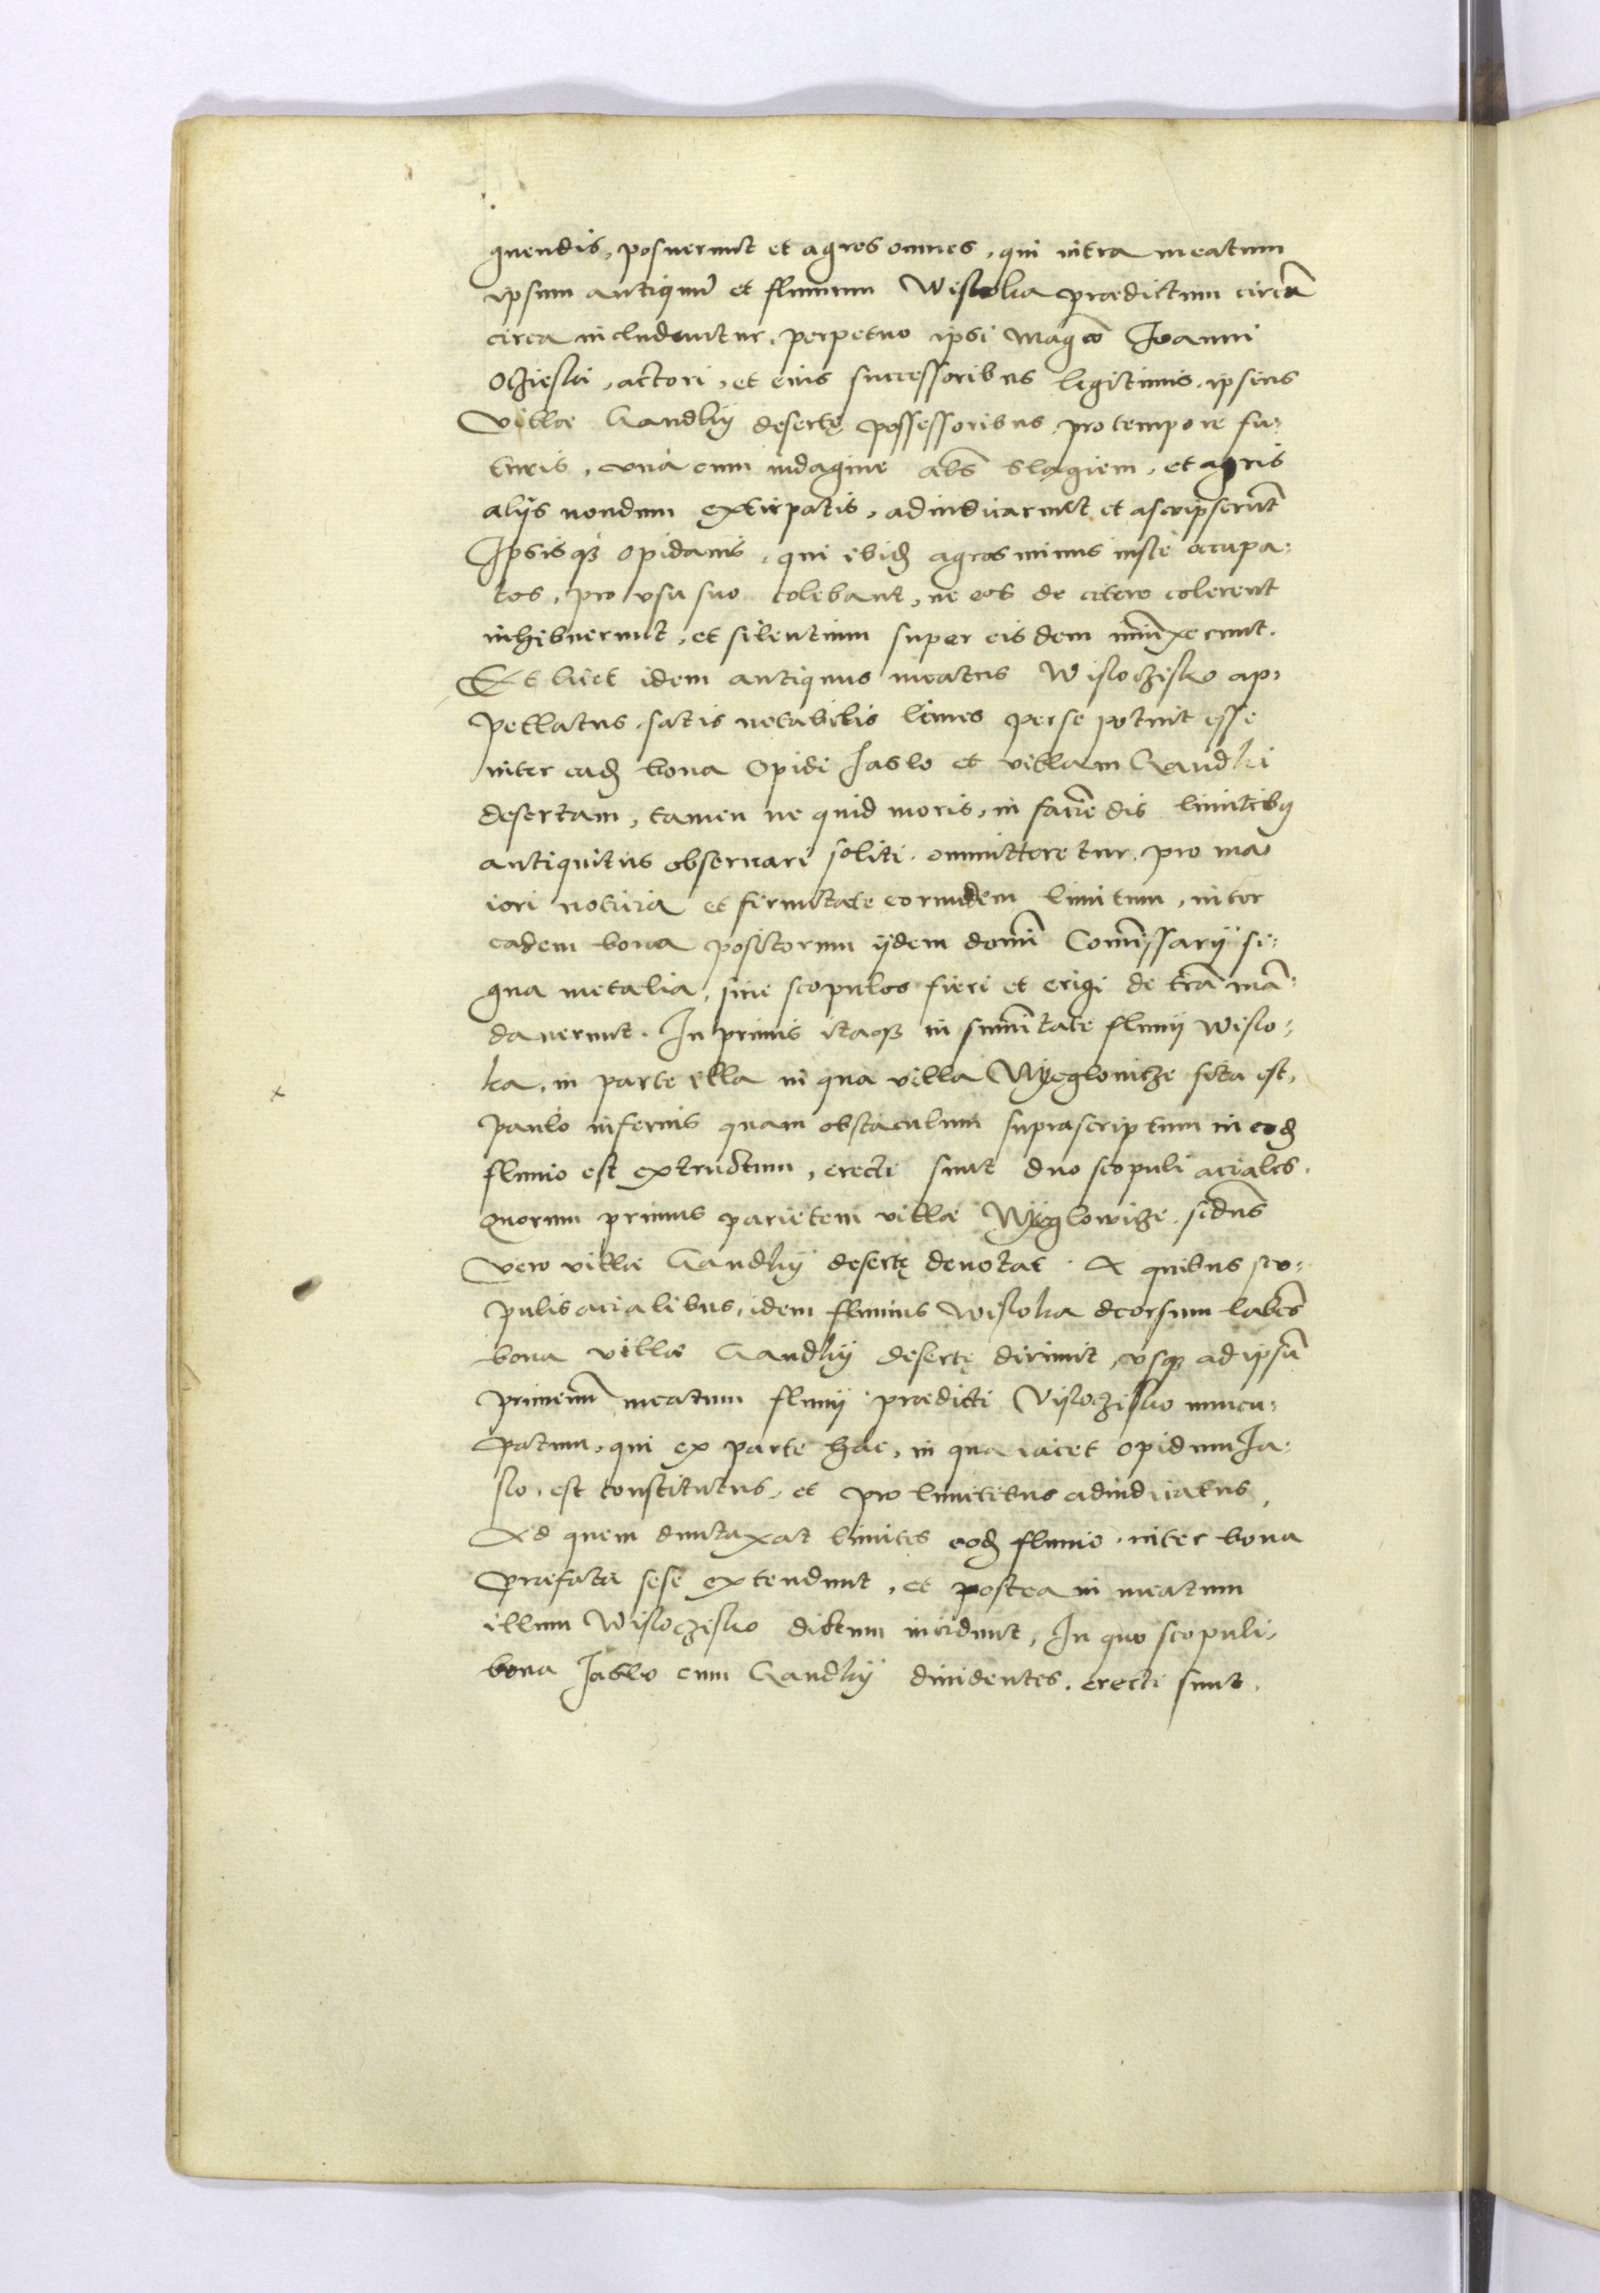 guendis, posuerunt et agros omnes, qui intra meatum
ipsum antiquũ et fluuium Wisloka prædictum circũ
circa includuntur, perpetuo ipsi Magco Joanni
Oczieski, actori, et eius successoribus legitimis, ipsius
villæ Gandky desertę possessoribus pro tempore fu-
turis, vna cum indagine als Slagiem, et agris
alijs nondum extirpatis, adiudicarunt et ascripserũt
Ipsisq opidanis, qui ibid agros minus iuste occupa-
tos, pro vsu suo colebant, ne eos de cetero colerent
inhibuerunt, et silentium super eisdem iniũxerunt.
Et licet idem antiquus meatus Wisloczisko ap-
pellatus, satis notabilis limes per se potuit esse
inter ead bona opidi Jaslo et villam Gandki
desertam, tamen ne quid moris, in faciẽdis limitibus
antiquitus obseruari soliti, ommitteretur, pro ma
iori noticia et firmitate eorumdem limitum, inter
eadem bona positorum ijdem domĩ Comissarij si-
gna metalia, siue scopulos fieri et erigi de trã mã-
dauerunt. In primis itaq in sumitate fluuij Wislo-
ka, in parte illa in qua villa Nyeglowicze sita est,
paulo inferius quam obstaculum suprascriptum in eod
fluuio est extructum, erecti sunt duo scopuli aciales.
Quorum primus parietem villæ Nyeglowicze, scdus
vero villæ Gandky desertę denotat. A quibus sco-
pulis acialibus, idem fluuius Wisloka deorsum labẽs
bona villæ Gandky desertę dirimit, vsq ad ipsũ
primeuũ meatum fluuij prædicti Visloczisko nuncu-
patum, qui ex parte hac, in qua iacet opidum Ja-
slo, est constitutus, et pro limitibus adiudicatus,
Ad quem duntaxat limites eod fluuio, inter bona
præfata sese extendunt, et postea in meatum
illum Wisloczisko dictum incidunt, In quo scopuli,
bona Jaslo cum Gandky diuidentes, erecti sunt.